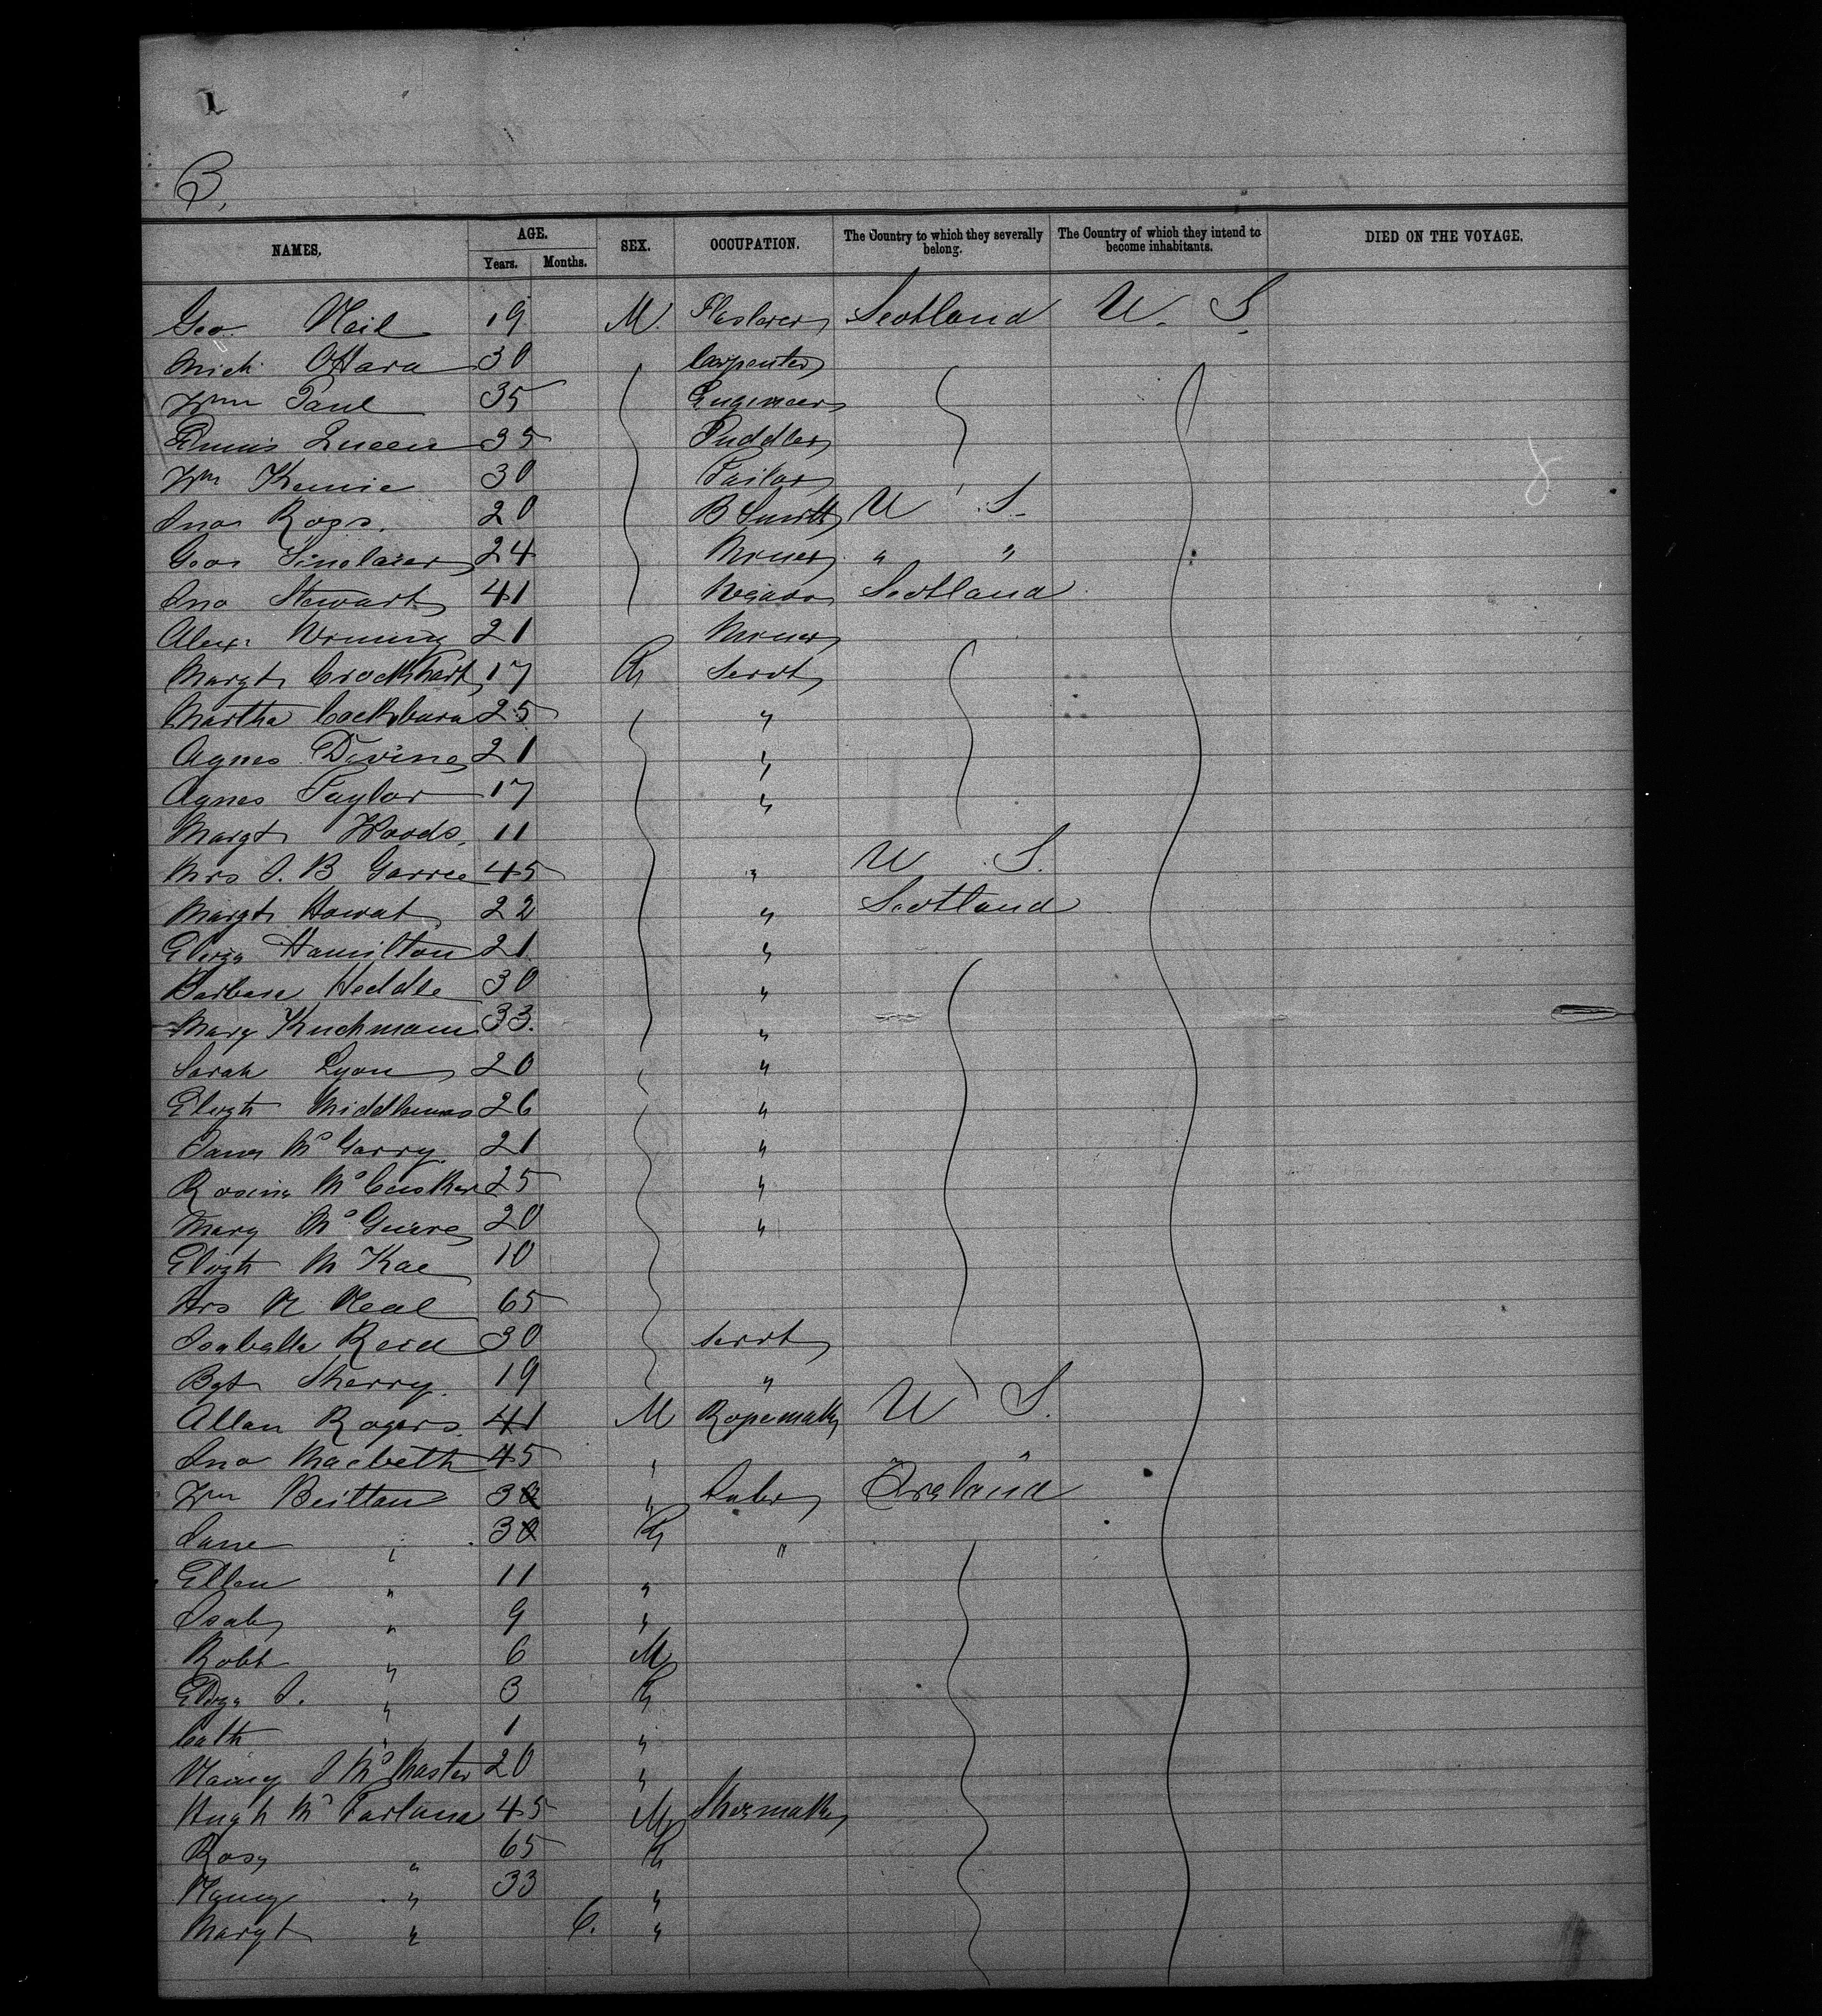 1
B.
NAMES. AGE. SEX. OCCUPATION. The Country to which they severally belong. The Country of which they intend to become inhabitants. DIED ON THE VOYAGE.
Years. Months.
Geo. Neil 19 M. Plasterer Scotland U. S.
Mich OHara 30 Carpenter
Wm Paul 35 Engineer
Dennis Queen 35 Puddler
Wm Kennie 30 Tailor
Jno Ross. 20 B Smith U S.
Geo Sinclair 24 Miner " "
Jno Stewart 41 Scotland
Alex. 21 Miner
Margt Crockhart 17 F Servt
Martha Cockburn 25 "
Agnes Divine 21 "
Agnes Taylor 17 "
Margt Woods. 11
Mrs J. B Gorrie 45 " U S.
Margt Howat 22 " Scotland
Eliza Hamilton 21 "
Barbara Heddle 30 "
Mary 33. "
Sarah Lyon 20 "
Elizth Middlemas 26 "
Jane Mc Garry. 21 "
Rosina Mc Cusker 25 "
Mary Mc Guire 20 "
Elizth M Kae 10
Mrs N Neal 65
Isabella Reid 30 Servt
Bgt Sherry. 19 "
Allan Rogers. 41 M Ropemaker U S.
Jno Macbeth 45 "
Wm Beittan 30 " Labr Ireland
Jane " 30 F "
Ellen " 11 "
Isab " 9 "
Robt " 6 M
Eliza J. " 3 F
Cath " 1 "
Nancy J Mc Master 20 "
Hugh Mc Farlane 45 M Shoemaker
Rose " 65 F
Nancy " 33 "
Margt " 6. "
8